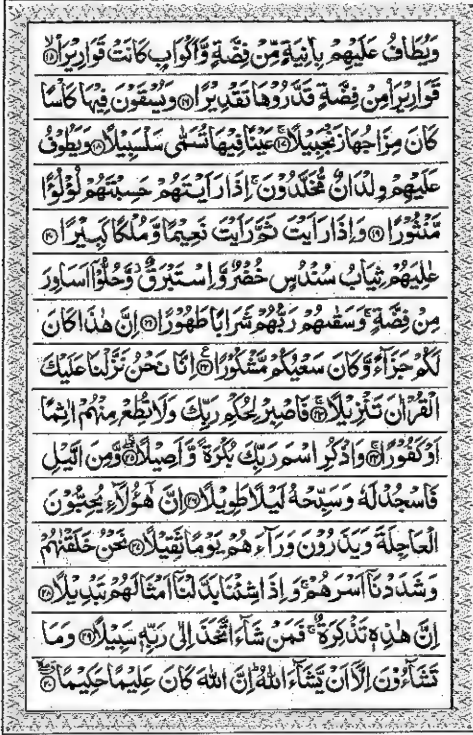 وَيُطَافُ عَلَيْهِمْ بِاٰنِيَةٍ مِّنْ فِضَّةٍ وَّاَكْوَابٍ كَانَتْ قَوَارِيْرَا۠ ۝۱۵
قَوَارِيْرَا۠ مِنْ فِضَّةٍ قَدَّرُوْهَا تَقْدِيْرًا ۝۱۶ وَيُسْقَوْنَ فِيْهَا كَاْسًا
كَانَ مِزَاجُهَا زَنْجَبِيْلًا ۝۱۷ عَيْنًا فِيْهَا تُسَمّٰى سَلْسَبِيْلًا ۝۱۸ وَيَطُوْفُ
عَلَيْهِمْ وِلْدَانٌ مُّخَلَّدُوْنَ ۚ اِذَا رَاَيْتَهُمْ حَسِبْتَهُمْ لُؤْلُؤًا
مَّنْثُوْرًا ۝۱۹ وَاِذَا رَاَيْتَ ثَمَّ رَاَيْتَ نَعِيْمًا وَّمُلْكًا كَبِيْرًا ۝۲۰
عٰلِيَهُمْ ثِيَابُ سُنْدُسٍ خُضْرٌ وَّاِسْتَبْرَقٌ ۖ وَّحُلُّوْۤا اَسَاوِرَ
مِنْ فِضَّةٍ ۚ وَسَقٰىهُمْ رَبُّهُمْ شَرَابًا طَهُوْرًا ۝۲۱ اِنَّ هٰذَا كَانَ
لَكُمْ جَزَآءً وَّكَانَ سَعْيُكُمْ مَّشْكُوْرًا ۝۲۲ اِنَّا نَحْنُ نَزَّلْنَا عَلَيْكَ
الْقُرْاٰنَ تَنْزِيْلًا ۝۲۳ فَاصْبِرْ لِحُكْمِ رَبِّكَ وَلَا تُطِعْ مِنْهُمْ اٰثِمًا
اَوْ كَفُوْرًا ۝۲۴ وَاذْكُرِ اسْمَ رَبِّكَ بُكْرَةً وَّاَصِيْلًا ۝۲۵ وَمِنَ الَّيْلِ
فَاسْجُدْ لَهٗ وَسَبِّحْهُ لَيْلًا طَوِيْلًا ۝۲۶ اِنَّ هٰٓؤُلَآءِ يُحِبُّوْنَ
الْعَاجِلَةَ وَيَذَرُوْنَ وَرَآءَهُمْ يَوْمًا ثَقِيْلًا ۝۲۷ نَحْنُ خَلَقْنٰهُمْ
وَشَدَدْنَاۤ اَسْرَهُمْ ۚ وَاِذَا شِئْنَا بَدَّلْنَاۤ اَمْثَالَهُمْ تَبْدِيْلًا ۝۲۸
اِنَّ هٰذِهٖ تَذْكِرَةٌ ۚ فَمَنْ شَآءَ اتَّخَذَ اِلٰى رَبِّهٖ سَبِيْلًا ۝۲۹ وَمَا
تَشَآءُوْنَ اِلَّاۤ اَنْ يَّشَآءَ اللّٰهُ ؕ اِنَّ اللّٰهَ كَانَ عَلِيْمًا حَكِيْمًا ۝۳۰